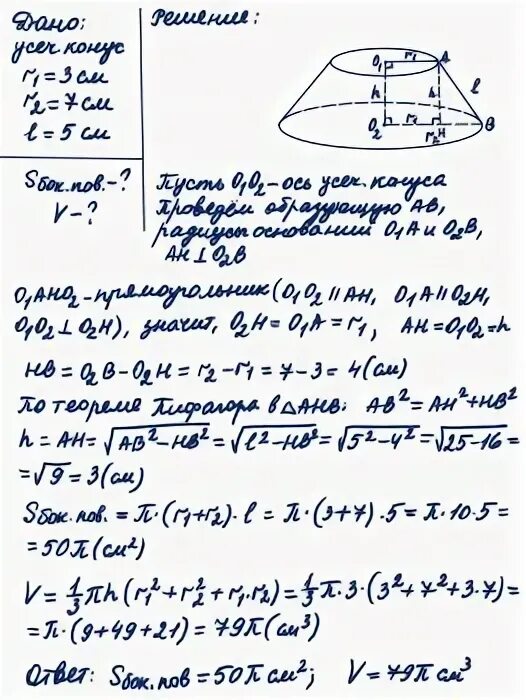 Дано:
усеч. конус
r₁ = 3 см
r₂ = 7 см
l = 5 см
Sбок.пов. - ?
V - ?
Решение:
O₁ r₁ A
h h l
O₂ r₁ H B
r₂
Пусть O₁O₂ - ось усеч. конуса
Проведём образующую AB,
радиусы оснований O₁A и O₂B,
AH ⊥ O₂B
O₁AHO₂ - прямоугольник (O₁O₂ ∥ AH, O₁A ∥ O₂H,
O₁O₂ ⊥ O₂H), значит, O₂H = O₁A = r₁, AH = O₁O₂ = h
HB = O₂B - O₂H = r₂ - r₁ = 7 - 3 = 4 (см)
По теореме Пифагора в △AHB: AB² = AH² + HB²
h = AH = √(AB² - HB²) = √(l² - HB²) = √(5² - 4²) = √(25 - 16) =
= √9 = 3 (см)
Sбок.пов. = π · (r₁ + r₂) · l = π · (3 + 7) · 5 = π · 10 · 5 =
= 50π (см²)
V = 1/3 πh (r₁² + r₂² + r₁ · r₂) = 1/3 π · 3 · (3² + 7² + 3 · 7) =
= π · (9 + 49 + 21) = 79π (см³)
Ответ: Sбок.пов = 50π см²; V = 79π см³